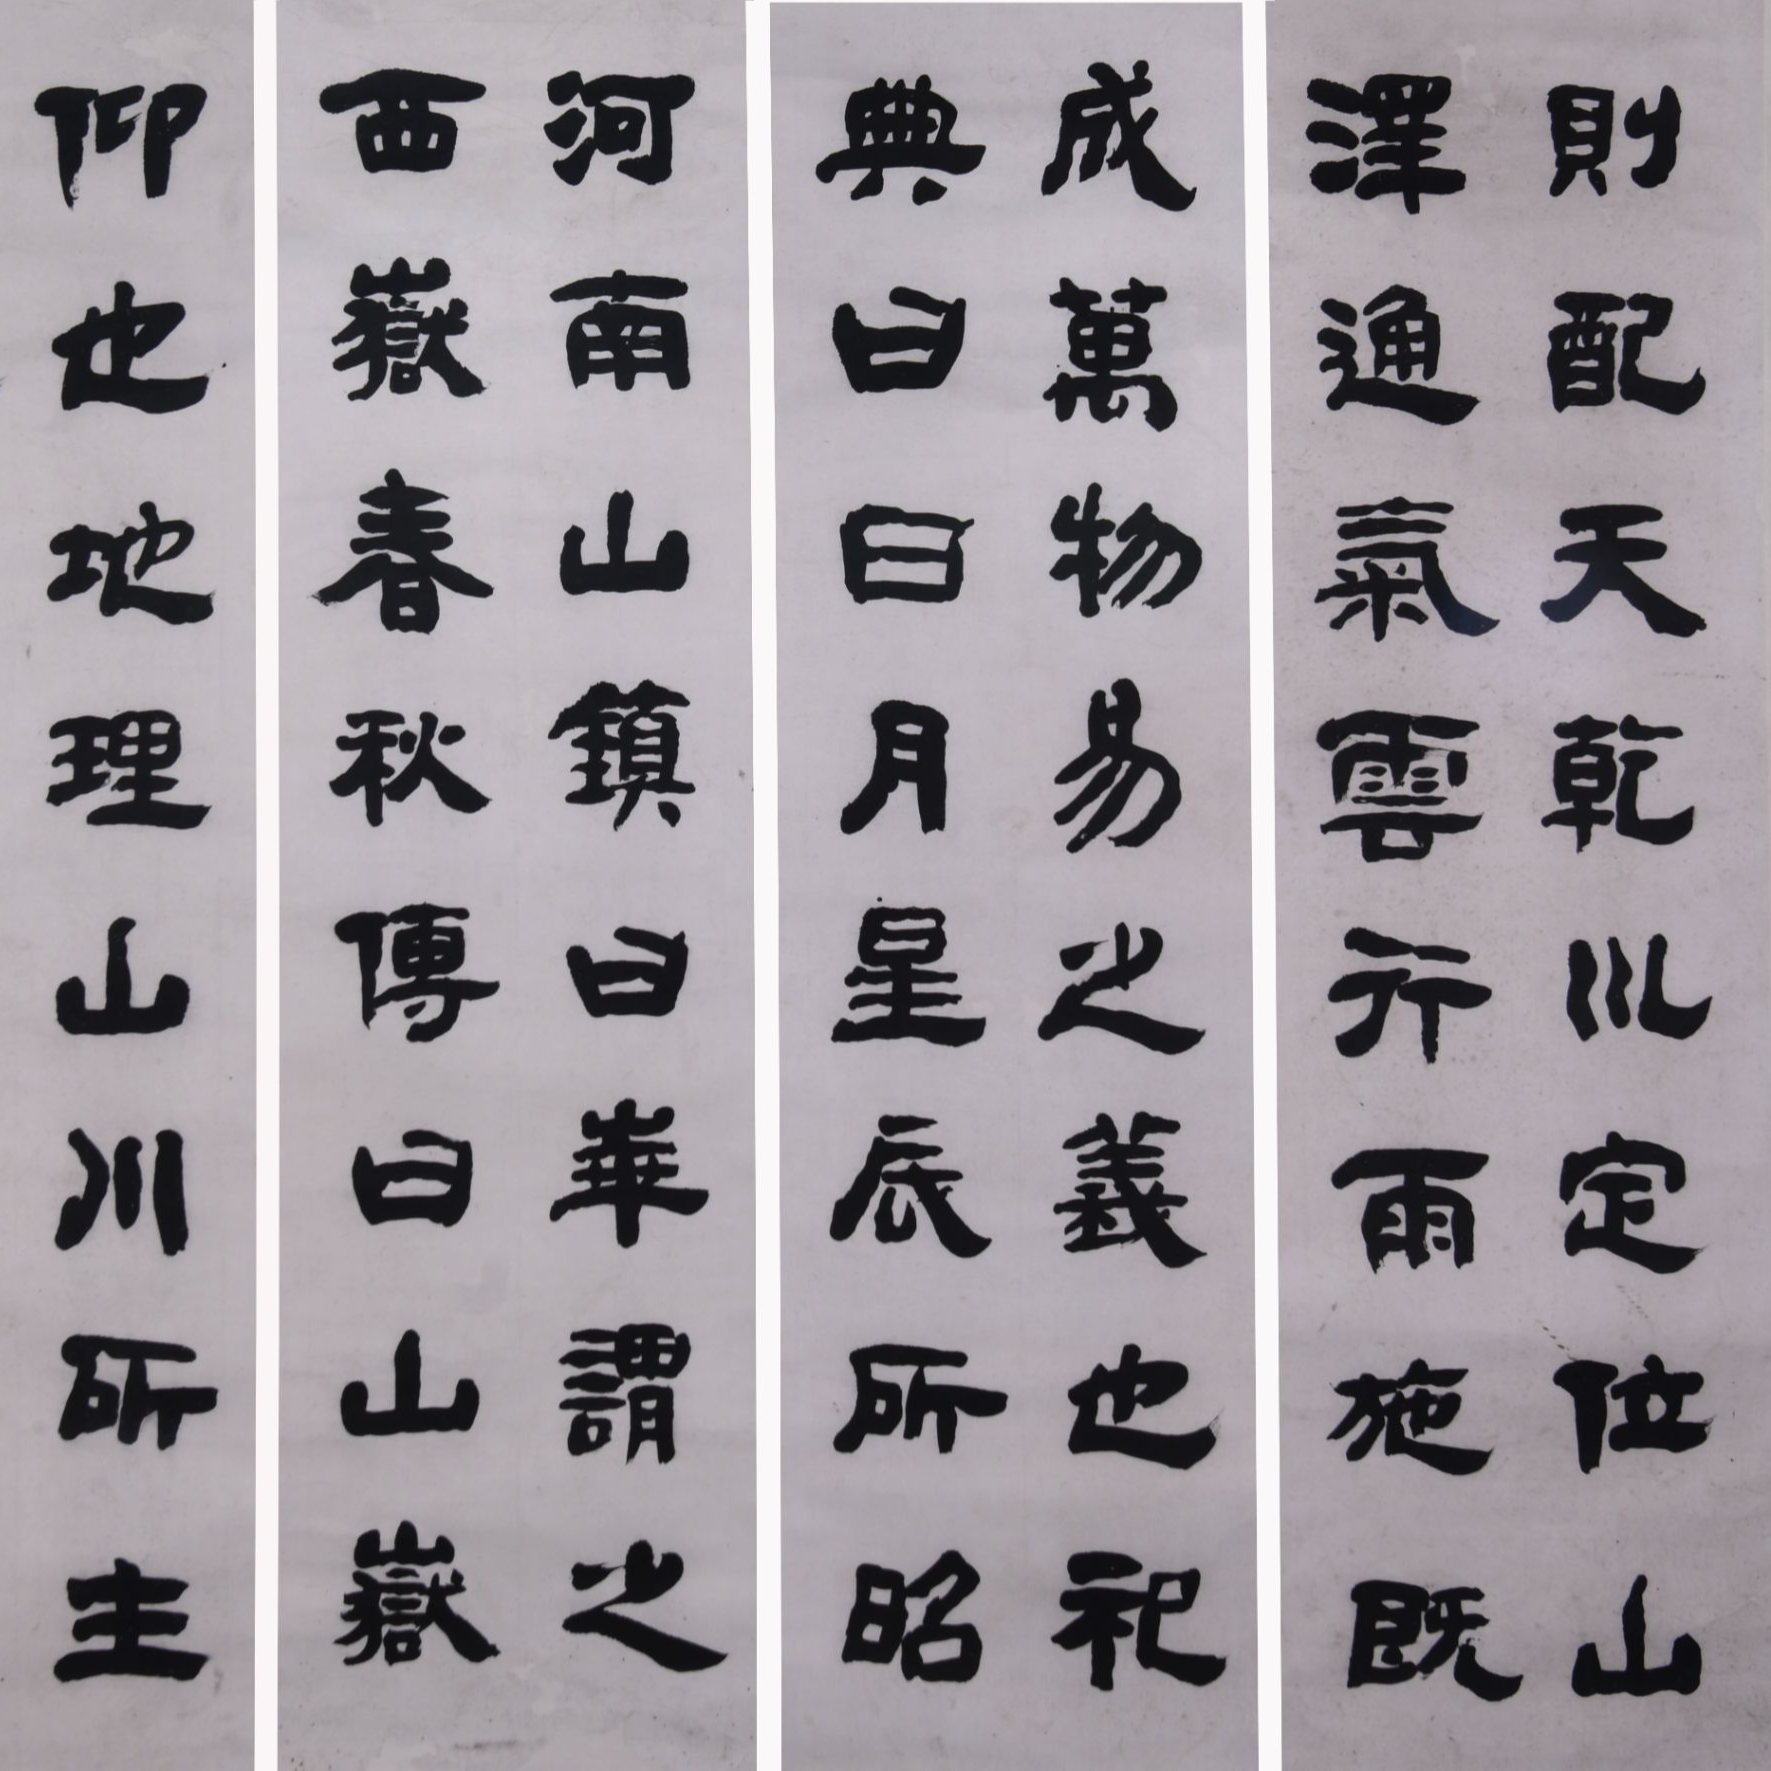 則配天乾㕥定位山
澤通氣雲行雨施既
成萬物易之義也祀
典曰日月星辰所昭
河南山鎮曰崋謂之
西嶽春秋傳曰山嶽
仰也地理山川所主